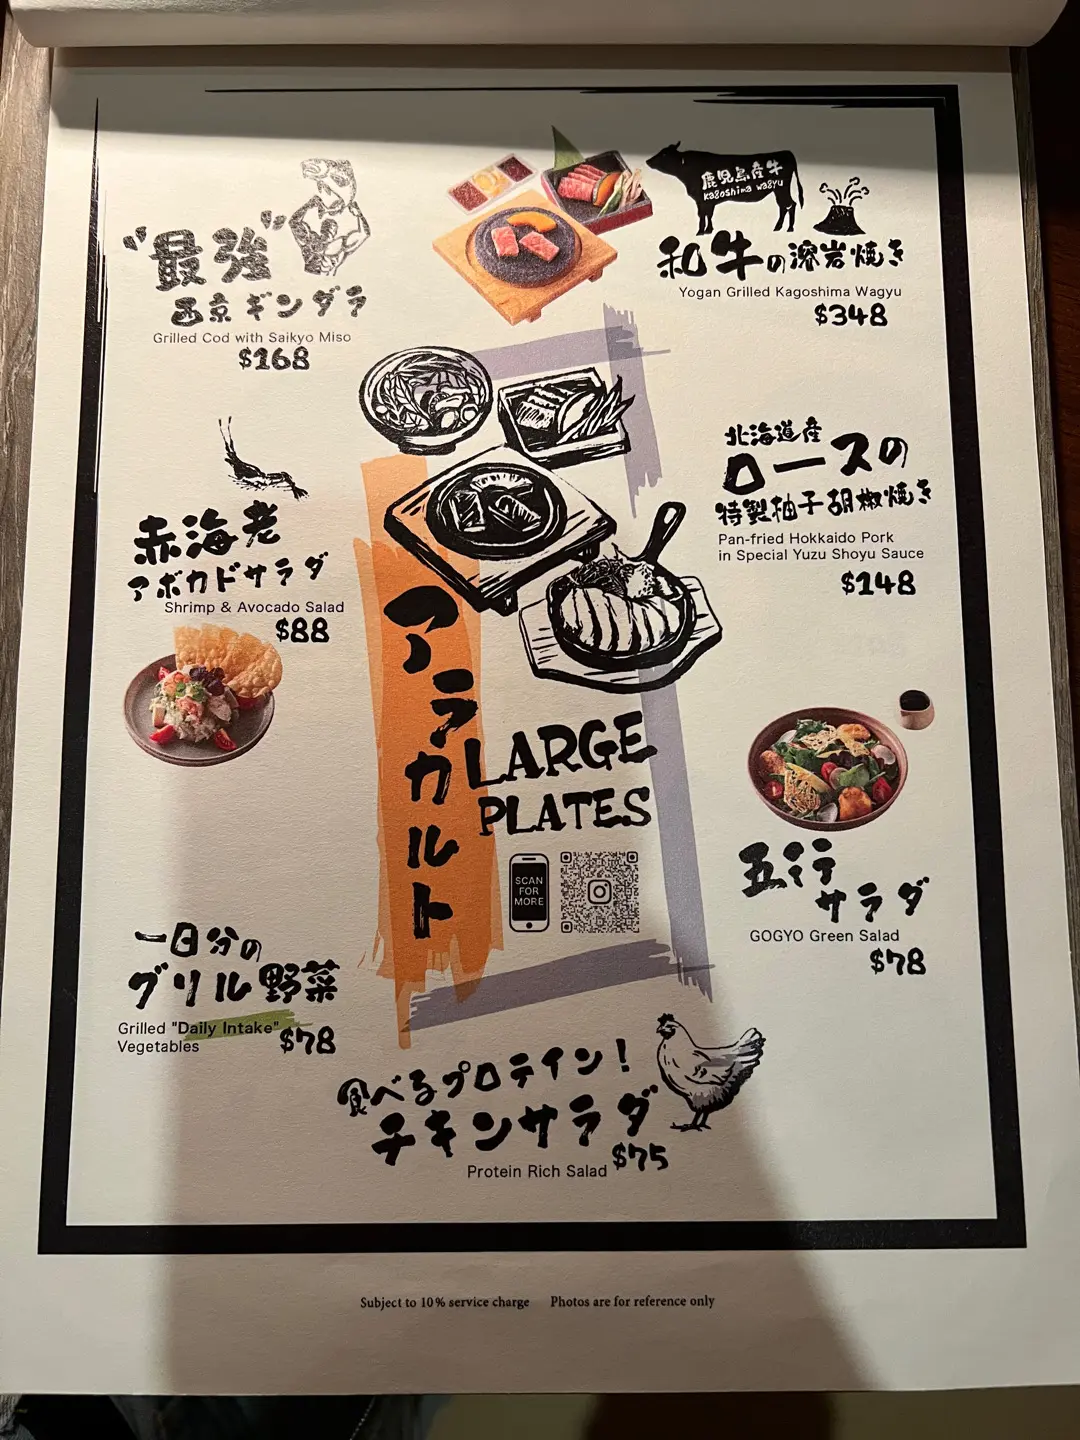 "最強"
西京ギンダラ
Grilled Cod with Saikyo Miso
$168
鹿児島産牛
kagoshima wagyu
和牛の溶岩焼き
Yogan Grilled Kagoshima Wagyu
$348
赤海老
アボカドサラダ
Shrimp & Avocado Salad
$88
北海道産
ロースの
特製柚子胡椒焼き
Pan-fried Hokkaido Pork
in Special Yuzu Shoyu Sauce
$148
アラカルト
LARGE
PLATES
SCAN
FOR
MORE
一日分の
グリル野菜
Grilled "Daily Intake"
Vegetables
$78
五行
サラダ
GOGYO Green Salad
$78
食べるプロテイン!
チキンサラダ
Protein Rich Salad
$75
Subject to 10% service charge Photos are for reference only